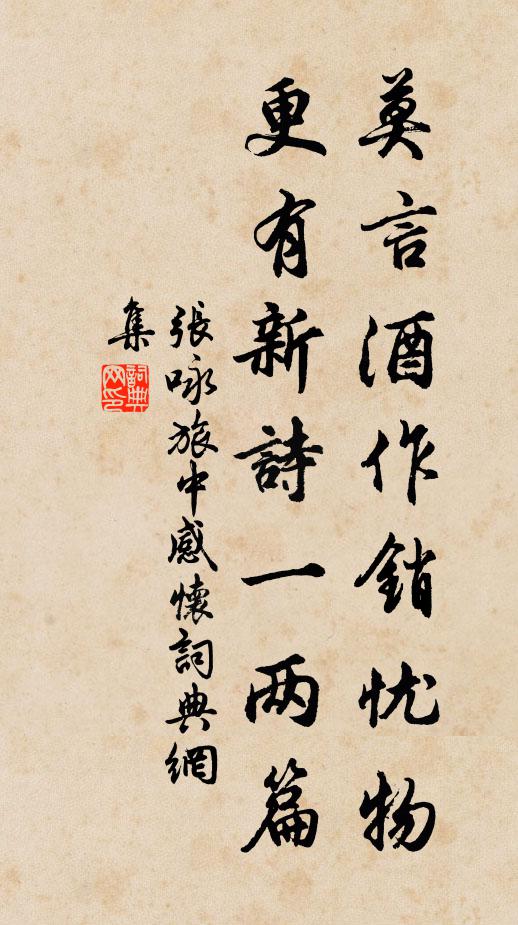 莫言酒作銷忧物
更有新詩一两篇
張咏旅中感懷詞典網
集
詞典網印